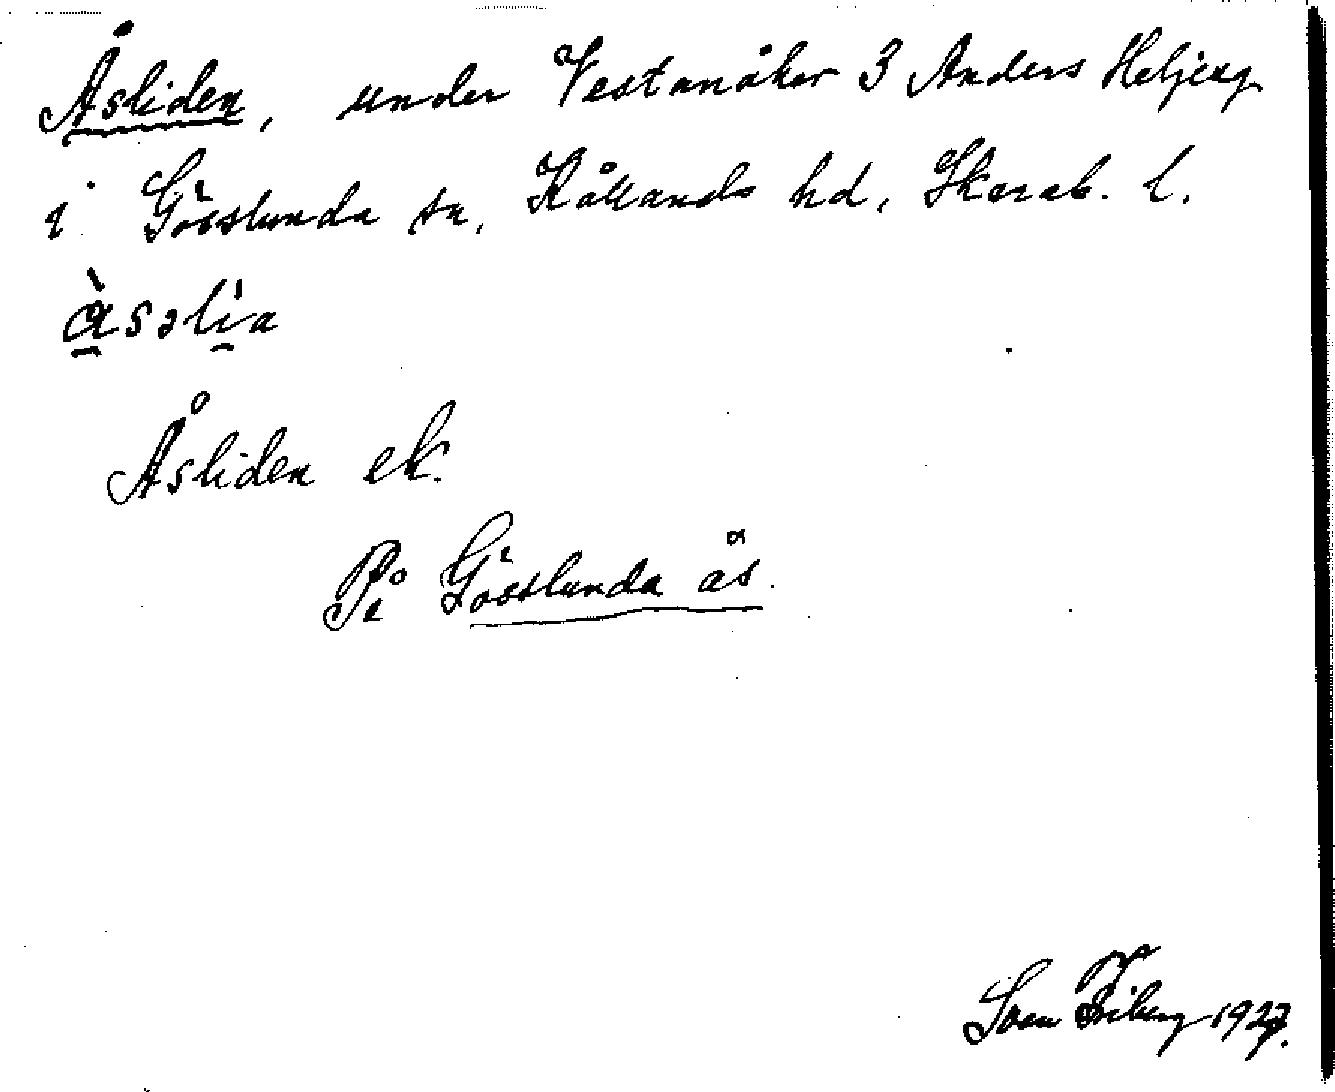 Åsliden, under Vestanåker 3 Anders Heljeng
i Gösslunda sn, Kållands hd, Skarab. l.
àsəlia
Åsliden ek.
På Gösslunda ås.
Sven Friberg 1927.